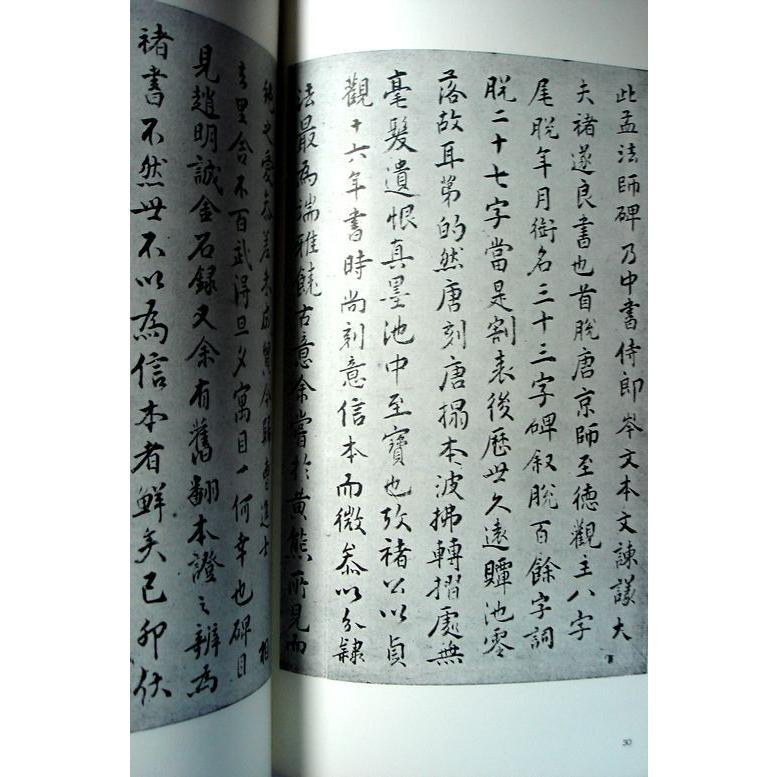 此孟法師碑乃中書侍郎岑文本文諫議大
夫褚遂良書也首脫唐京師至德觀主八字
尾脫年月銜名三十三字碑叙脫百餘字詞
脫二十七字當是割表後歷世久遠贉池零
落故耳第的然唐刻唐搨本波拂轉摺處無
毫髮遺恨真墨池中至寶也攷褚公以貞
觀十六年書時尚刻意信本而微叅以分隸
法最為端雅饒古意余嘗於黃熊所見而
愛 差未成 進士 相
去里舍不百武得旦夕寓目一何幸也碑目
見趙明誠金石録又余有舊翻本證之辨為
褚書不然世不以為信本者鮮矣己卯伏
30